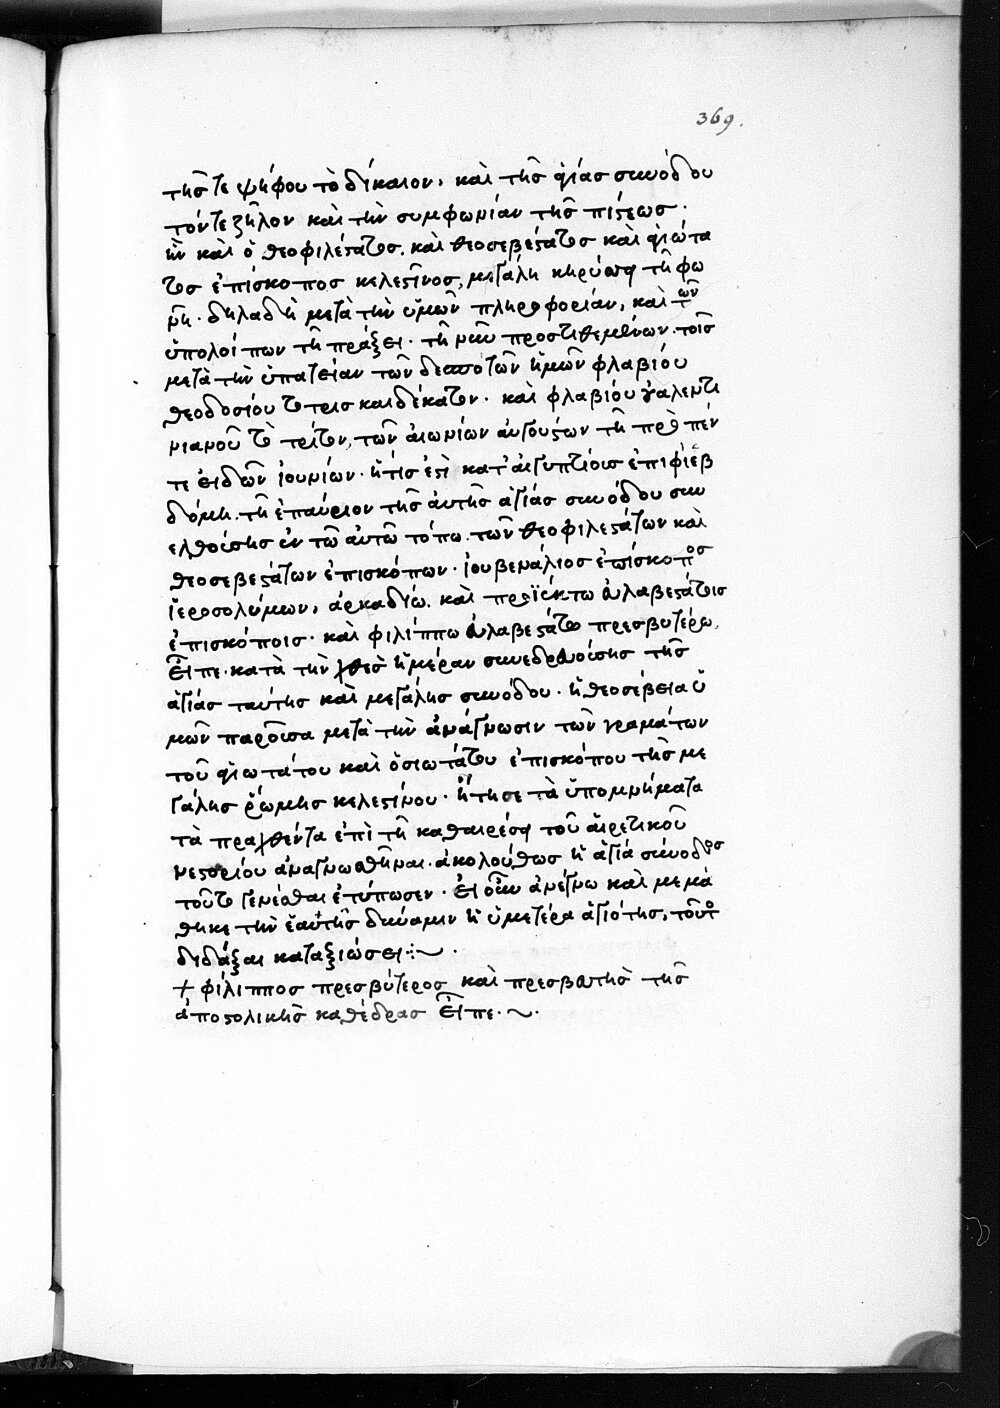 369.
τῆς τε ψήφου τὸ δίκαιον, καὶ τῆς ἁγίας συνόδου
τόν τε ζῆλον καὶ τὴν συμφωνίαν τῆς πίστεως.
ἣν καὶ ὁ θεοφιλέστατος. καὶ θεοσεβέστατος καὶ ἁγιώτα
τος ἐπίσκοπος κελεστῖνος, μεγάλη κηρύσσει τῆ φω
νῆ. δηλαδὴ μετὰ τὴν ὑμῶν πληροφορίαν, καὶ τῶν
ὑπολοίπων τῆ πράξει. τῆ νῦν προστιθεμένων. τοῖς
μετὰ τὴν ὑπατείαν τῶν δεσποτῶν ἡμῶν φλαβίου
θεοδοσίου τὸ τρισκαιδέκατον. καὶ φλαβίου οὐαλεντι
νιανοῦ τὸ τρίτον, τῶν αἰωνίων αὐγούστων τῆ πρὸ πέν
τε εἰδῶν ἰουνίων. ἥτις ἐστὶ κατ' αἰγυπτίοις ἐπιφὶ ἑβ
δόμη. τῆ ἐπαύριον τῆς αὐτῆς ἁγίας συνόδου συν
ελθούσης ἐν τῶ αὐτῶ τόπω. τῶν θεοφιλεστάτων καὶ
θεοσεβεστάτων ἐπισκόπων. ἰουβενάλιος ἐπίσκοπος
ἱεροσολύμων, ἀρκαδίω. καὶ προϊέκτω εὐλαβεστάτοις
ἐπισκόποις. καὶ φιλίππω εὐλαβεστάτω πρεσβυτέρω,
εἶπε. κατὰ τὴν χθὲς ἡμέραν συνεδρευούσης τῆς
ἁγίας ταύτης καὶ μεγάλης συνόδου. ἡ θεοσέβεια ὑ
μῶν παροῦσα μετὰ τὴν ἀνάγνωσιν τῶν γραμάτων
τοῦ ἁγιωτάτου καὶ ὁσιωτάτου ἐπισκόπου τῆς με
γάλης ῥώμης κελεστίνου. ἤτησε τὰ ὑπομνήματα
τὰ πραχθέντα ἐπὶ τῆ καθαιρέσει τοῦ αἱρετικοῦ
νεστορίου ἀναγνωσθῆναι. ἀκολούθως ἡ ἁγία σύνοδος
τοῦτο γενέσθαι ἐτύπωσεν. εἰ οὖν ἀνέγνω καὶ μεμά
θηκε τὴν ἑαυτῆς δύναμιν ἡ ὑμετέρα ἁγιότης, τοῦτο
διδάξαι καταξιώσει:~.
+ φίλιππος πρεσβύτερος καὶ πρεσβευτὴς τῆς
ἀποστολικῆς καθέδρας εἶπε.~.